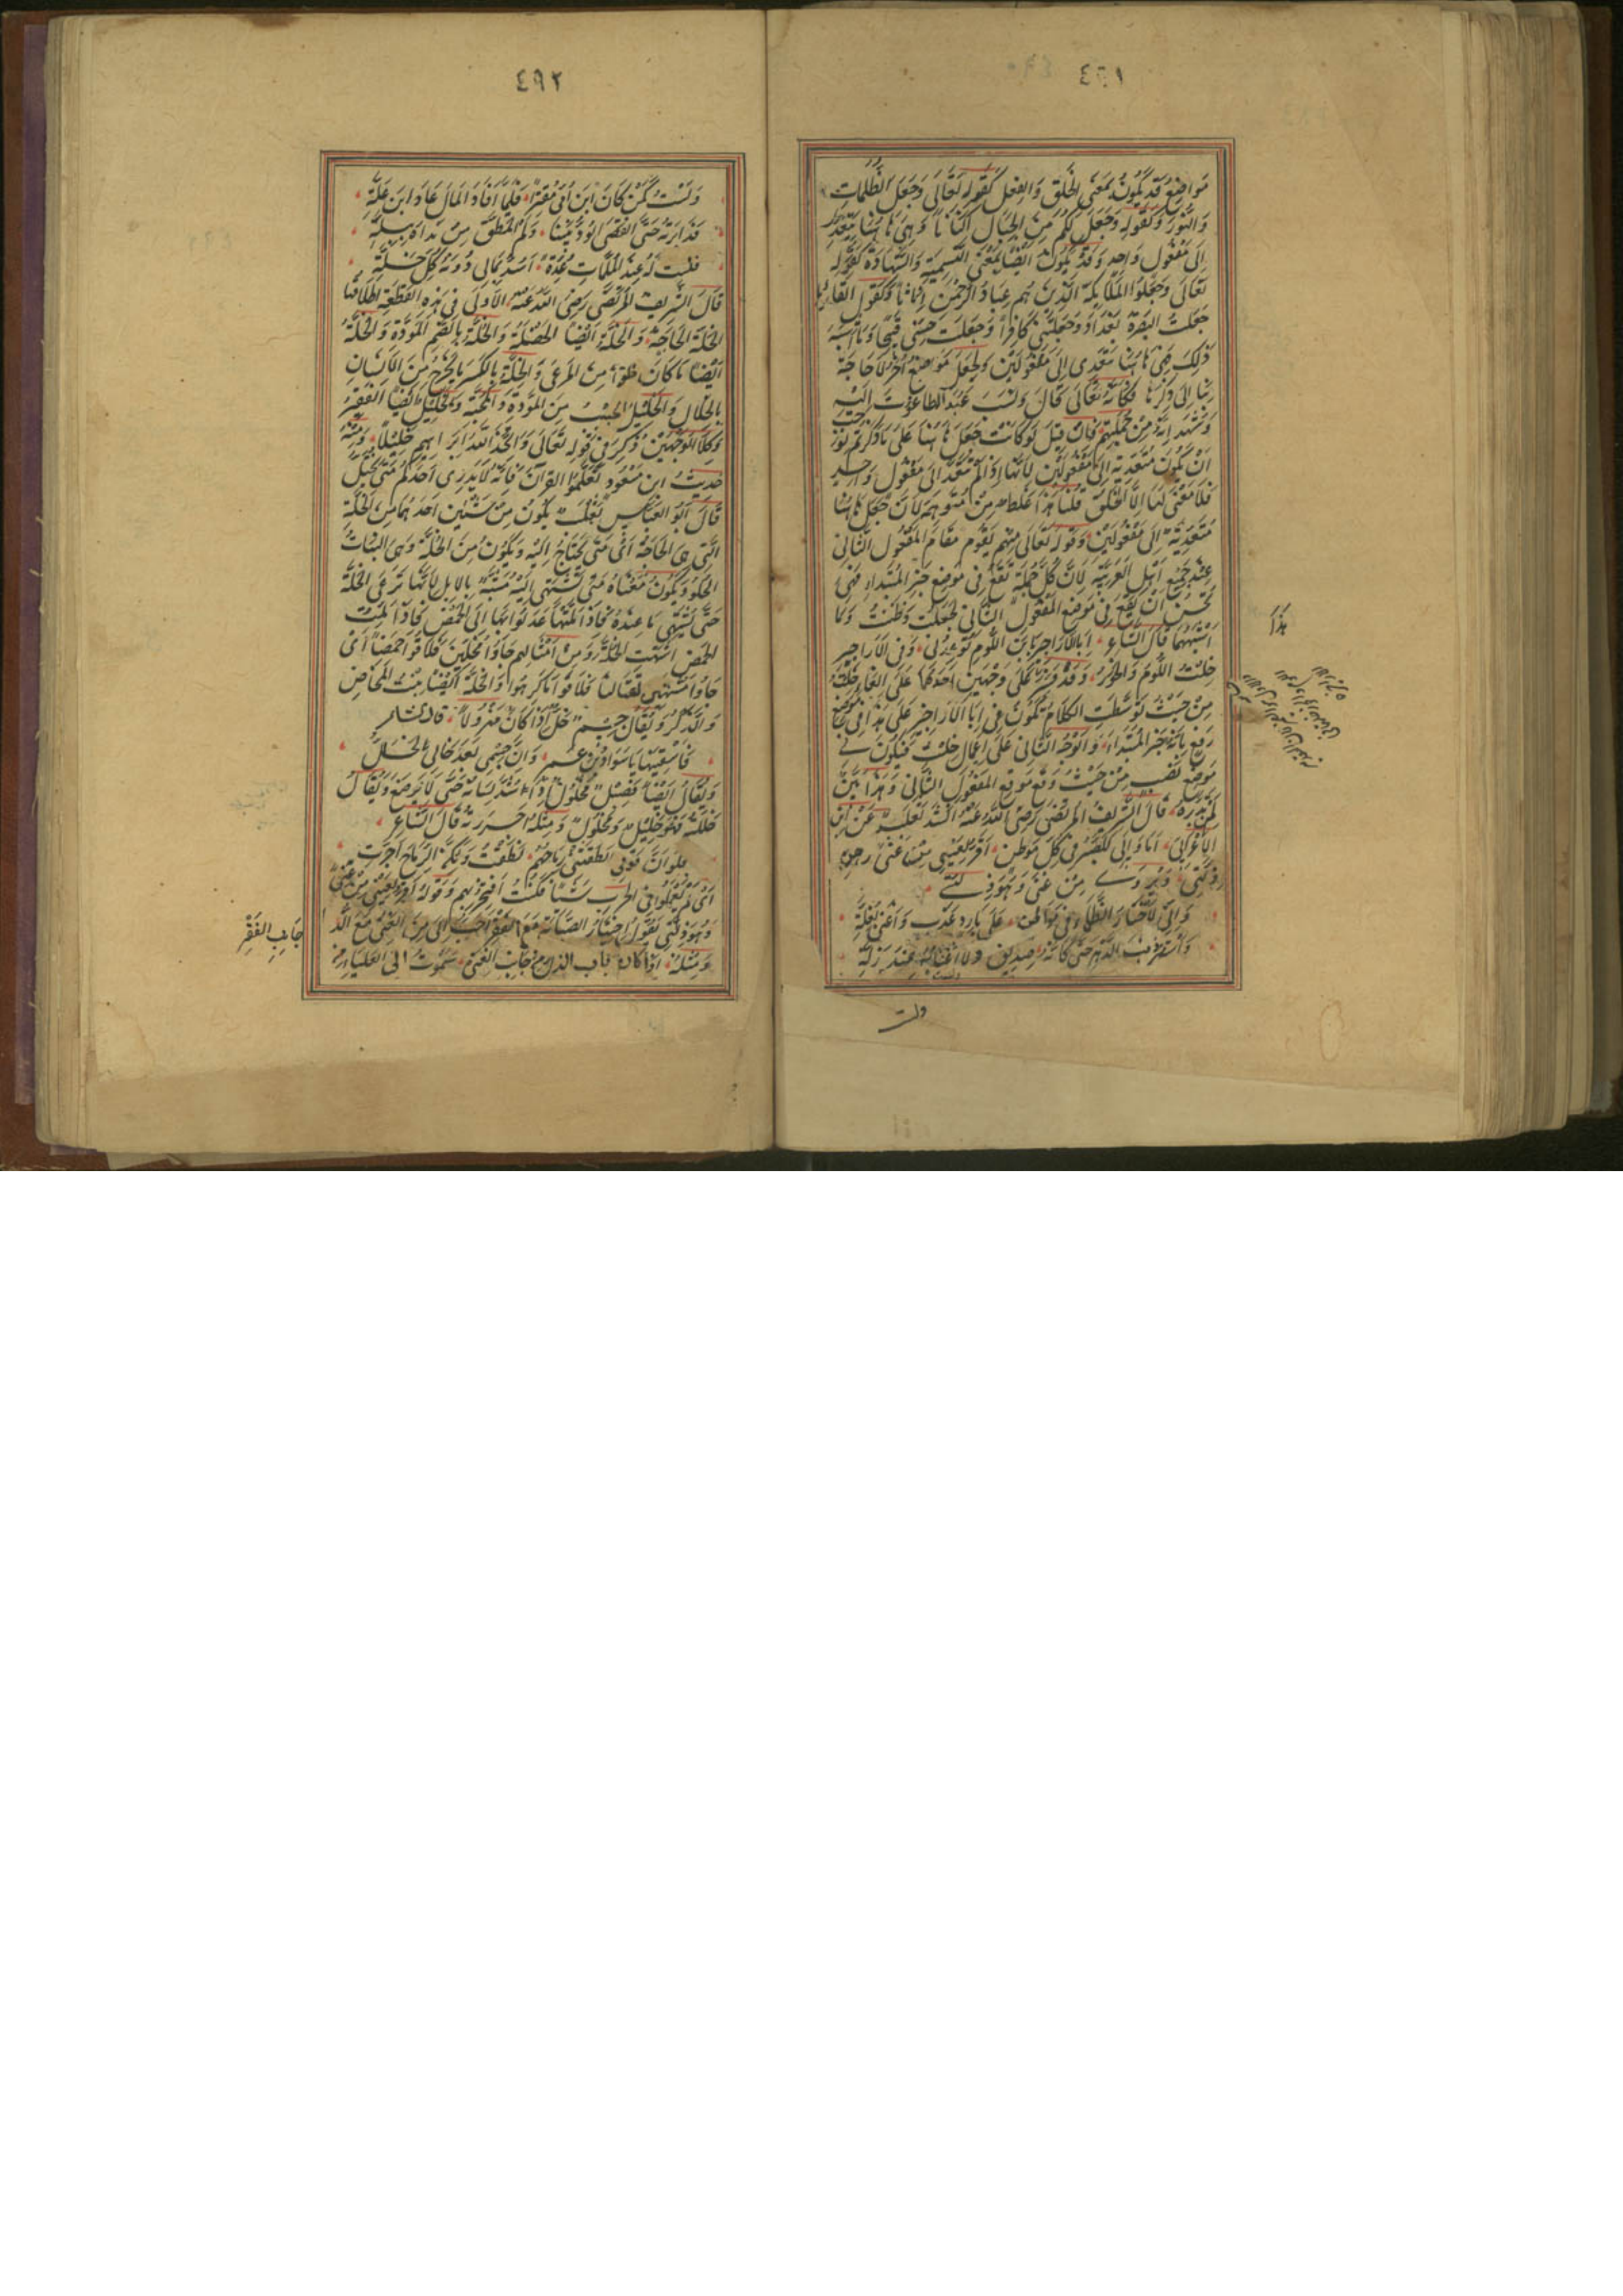 ٤٩١
مَواضِعُ قَد يَكُونُ بمَعنَى الخَلقِ وَالفِعلِ كَقَولِهِ تَعَالَى وَجَعَلَ الظُّلمَاتِ
وَالنُّورَ وَكَقَولِهِ وَجَعَلَ لَكُم مِنَ الجِبَالِ اَكنَانًا وَهِيَ هَاهُنَا مُتَعَدِّيَة
اِلَى مَفعُولٍ وَاحِدٍ وَقَد يَكُونُ اَيضًا بمَعنَى التَّسمِيَةِ وَالشَّهَادَةِ كَقَولِهِ
تَعَالَى وَجَعَلُوا المَلَائِكَةَ الَّذِينَ هُم عِبَادُ الرَّحمَنِ اِنَاثًا وَكَقَولِ القَائِلِ
جَعَلتَ البَصرَةَ بَغدَادَ وَجَعَلتَنِي كَافِرًا وَجَعَلتَ حَسَنِي قَبِيحًا وَمَا اَشبَهَ
ذَلِكَ فَهِيَ هَاهُنَا تَتَعَدَّى اِلَى مَفعُولَينِ وَلِجَعَلَ مَوَاضِعُ اُخَرُ لَا حَاجَةَ
بِنَا اِلَى ذِكرِهَا فَكَاَنَّهُ تَعَالَى قَالَ وَنَسَبَ عَبدَ الطَّاغُوتِ اِلَيهِ
وَشَهِدَ اَنَّهُ مِن جُملَتِهِم فَاِن قِيلَ لَو كَانَت جَعَلَ هَاهُنَا عَلَى مَا ذَكَرتُم لَوَجَبَ
اَن يَكُونَ مُتَعَدِّيَةً اِلَى مَفعُولَينِ لِاَنَّهَا اِذَا لَم تَتَعَدَّ اِلَى مَفعُولٍ وَاحِدٍ
فَلَا مَعنَى لَهَا اِلَّا الخَلقُ قُلنَا هَذَا غَلَطٌ مِن مُتَوَهِّمِهِ لِاَنَّ جَعَلَ هَاهُنَا
مُتَعَدِّيَةٌ اِلَى مَفعُولَينِ وَقَولُهُ تَعَالَى مِنهُم يَقُومُ مَقَامَ المَفعُولِ الثَّانِي
عِندَ جَمِيعِ اَهلِ العَرَبِيَّةِ لِاَنَّ كُلَّ جُملَةٍ تَقَعُ فِي مَوضِعِ خَبَرِ المُبتَدَاءِ فَهِيَ
تَحسُنُ اَن تَقَعَ فِي مَوضِعِ المَفعُولِ الثَّانِي لِجَعَلتُ وَظَنَنتُ وَمَا
اَشبَهَهُمَا قَالَ الشَّاعِرُ اَبِالاَرَاجِيزِ يَا بنَ اللُّؤمِ تُوعِدُنِي وَفِي الاَرَاجِيزِ
خِلتُ اللُّؤمُ وَالخَوَرُ وَقَد عَلَى وَجهَينِ اَحَدُهُمَا عَلَى اِلغَاءِ خِلتُ
مِن حَيثُ تَوَسَّطَتِ الكَلَامَ فَيَكُونُ فِي اَبَا الاَرَاجِيزِ عَلَى هَذَا فِي مَوضِعِ
رَفعٍ بِاَنَّهُ خَبَرُ المُبتَدَاءِ وَالوَجهُ الثَّانِي عَلَى اِعمَالِ خِلتُ فَيَكُونُ فِي
مَوضِعِ نَصبٍ مِن حَيثُ وَقَعَ مَوقِعَ المَفعُولِ الثَّانِي وَهَذَا بَيِّنٌ
لِمَن تَدَبَّرَهُ قَالَ الشَّرِيفُ المُرتَضَى رَضِيَ اللّهُ عَنهُ اَنشَدَ ثَعلَبٌ عَنِ ابنِ
الاَعرَابِيِّ اَمَا وَاِنِّي لَلصَّبرُ فِي كُلِّ مَوطِنٍ اَقَرُّ لِعَينِي مِن غِنًى رَهنِ
ذِلَّتِي وَيُروَى مِن غِنًى وَهُوَ ذِلَّتِي
وَاِنِّي لَاَختَارُ الظَّمَاءَ فِي مَوَاطِنَ عَلَى بَارِدٍ عَذبٍ وَاَغنَى بِغُلَّةِ
وَاَستُرُ ذَنبَ الدَّهرِ حَتَّى كَاَنَّهُ صَدِيقٌ وَلَا اَغتَابُهُ عِندَ زَلَّةِ
ولست
هَذَا
٤٩٢
وَلَستُ كَمَن كَانَ ابنَ اُمِّي مُقتِرًا فَلَمَّا اَفَادَ المَالَ عَادَ ابنَ عَلَّةِ
فَدَابَرتُهُ حَتَّى انقَضَى الوُدُّ بَينَنَا وَلَم اَتَمَطَّق مِن نَدَاهُ بِبَلَّةِ
فَكُنتُ لَهُ عِندَ المُلِمَّاتِ عُدَّةً اَسُدُّ بِمَالِي دُونَهُ كُلَّ خَلَّةِ
قَالَ الشَّرِيفُ المُرتَضَى رَضِيَ اللّهُ عَنهُ الاُولَى فِي هَذِهِ القِطعَةِ اِطلَاقهَا
الخَلَّةُ الحَاجَةُ وَالخَلَّةُ اَيضًا الخَصلَةُ وَالخُلَّةُ بِالضَّمِّ المَوَدَّةُ وَالخُلَّةُ
اَيضًا مَا كَانَ حُلوًا مِنَ المَرعَى وَالخِلَّةُ بِالكَسرِ مَا يَخرُجُ مِنَ الاَسنَانِ
بِالخِلَالِ وَالخَلِيلُ الحَبِيبُ مِنَ المَوَدَّةِ وَالمَحَبَّةِ وَالخَلِيلُ اَيضًا الفَقِيرُ
وَكِلَا الوَجهَينِ ذُكِرَ فِي قَولِهِ تَعَالَى وَاتَّخَذَ اللّهُ اِبرَاهِيمَ خَلِيلًا وَمِنهُ
حَدِيثُ ابنِ مَسعُودٍ تَعَلَّمُوا القُرآنَ فَاِنَّهُ لَا يَدرِي اَحَدُكُم مَتَى يُختَلُّ
قَالَ اَبُو العَبَّاسِ ثَعلَبٌ يَكُونُ مِن شَيئَينِ اَحَدُهُمَا مِنَ الخَلَّةِ
الَّتِي هِيَ الحَاجَةُ اَي مَتَى يُحتَاجُ اِلَيهِ وَيَكُونُ مِنَ الخُلَّةِ وَهِيَ النَّبَاتُ
الحُلوُ وَيَكُونُ مَعنَاهُ مَتَى يُشتَهَى اِلَيهِ مُشَبَّه بِالاِبِلِ لِاَنَّهَا تَرعَى الخُلَّةَ
حَتَّى تَشتَهِي مَا عِندَهُ فَاِذَا مَلَّتهَا عَدَلُوا بِهَا اِلَى الحَمضِ فَاِذَا مَلَّتِ
الحَمضَ اشتَهَتِ الخُلَّةَ وَمِن اَمثَالِهِم جَاؤُا مُخِلِّينَ فَلَاقُوا حَمضًا اَي
جَاؤُا مُشتَهِي لِقِتَالِنَا فَلَاقُوا مَا كَرِهُوا وَالخَلَّةُ اَيضًا بِنتُ المَخَاضِ
وَالذَّكَرُ وَيُقَالُ جِسمٌ خَلٌّ اِذَا كَانَ مَهزُولًا قَالَ الشَّاعِرُ
فَاسقِنِيهَا يَا سَوَادَ بنَ عَمرٍو اِنَّ جِسمِي بَعدَ خَالِي لَخَلُّ
وَيُقَالُ اَيضًا فَصِيلٌ مَخلُولٌ اِذَا شُدَّ لِسَانُهُ حَتَّى لَا يَرضَعَ وَيُقَالُ
خَلَلتُهُ فَهُوَ خَلِيلٌ وَمَخلُولٌ وَمِثلُهُ اَجرَرتُهُ قَالَ الشَّاعِرُ
فَلَو اَنَّ قَومِي اَنطَقَتنِي رِمَاحُهُم نَطَقتُ وَلَكِنَّ الرِّمَاحَ اَجَرَّتِ
اَي لَم يَعمَلُوا فِي الحَربِ شَيئًا فَكُنتُ اَفتَخِرُ بِهِم وَقَولُهُ اَقَرُّ لِعَينِي مِن غِنًى
وَهُوَ ذِلَّتِي يَقُولُ اِختِيَارُ الصِّيَانَةِ مَعَ الفَقرِ اَحَبُّ اِلَيَّ مِنَ الغِنَى مَعَ الذُّلِّ
وَمِثلُهُ اِذَا كَانَ بَابُ الذُّلِّ مِن جَانِبِ الغِنَى سَمَوتُ اِلَى العَليَاءِ مِن
جَانِبِ الفَقْرِ